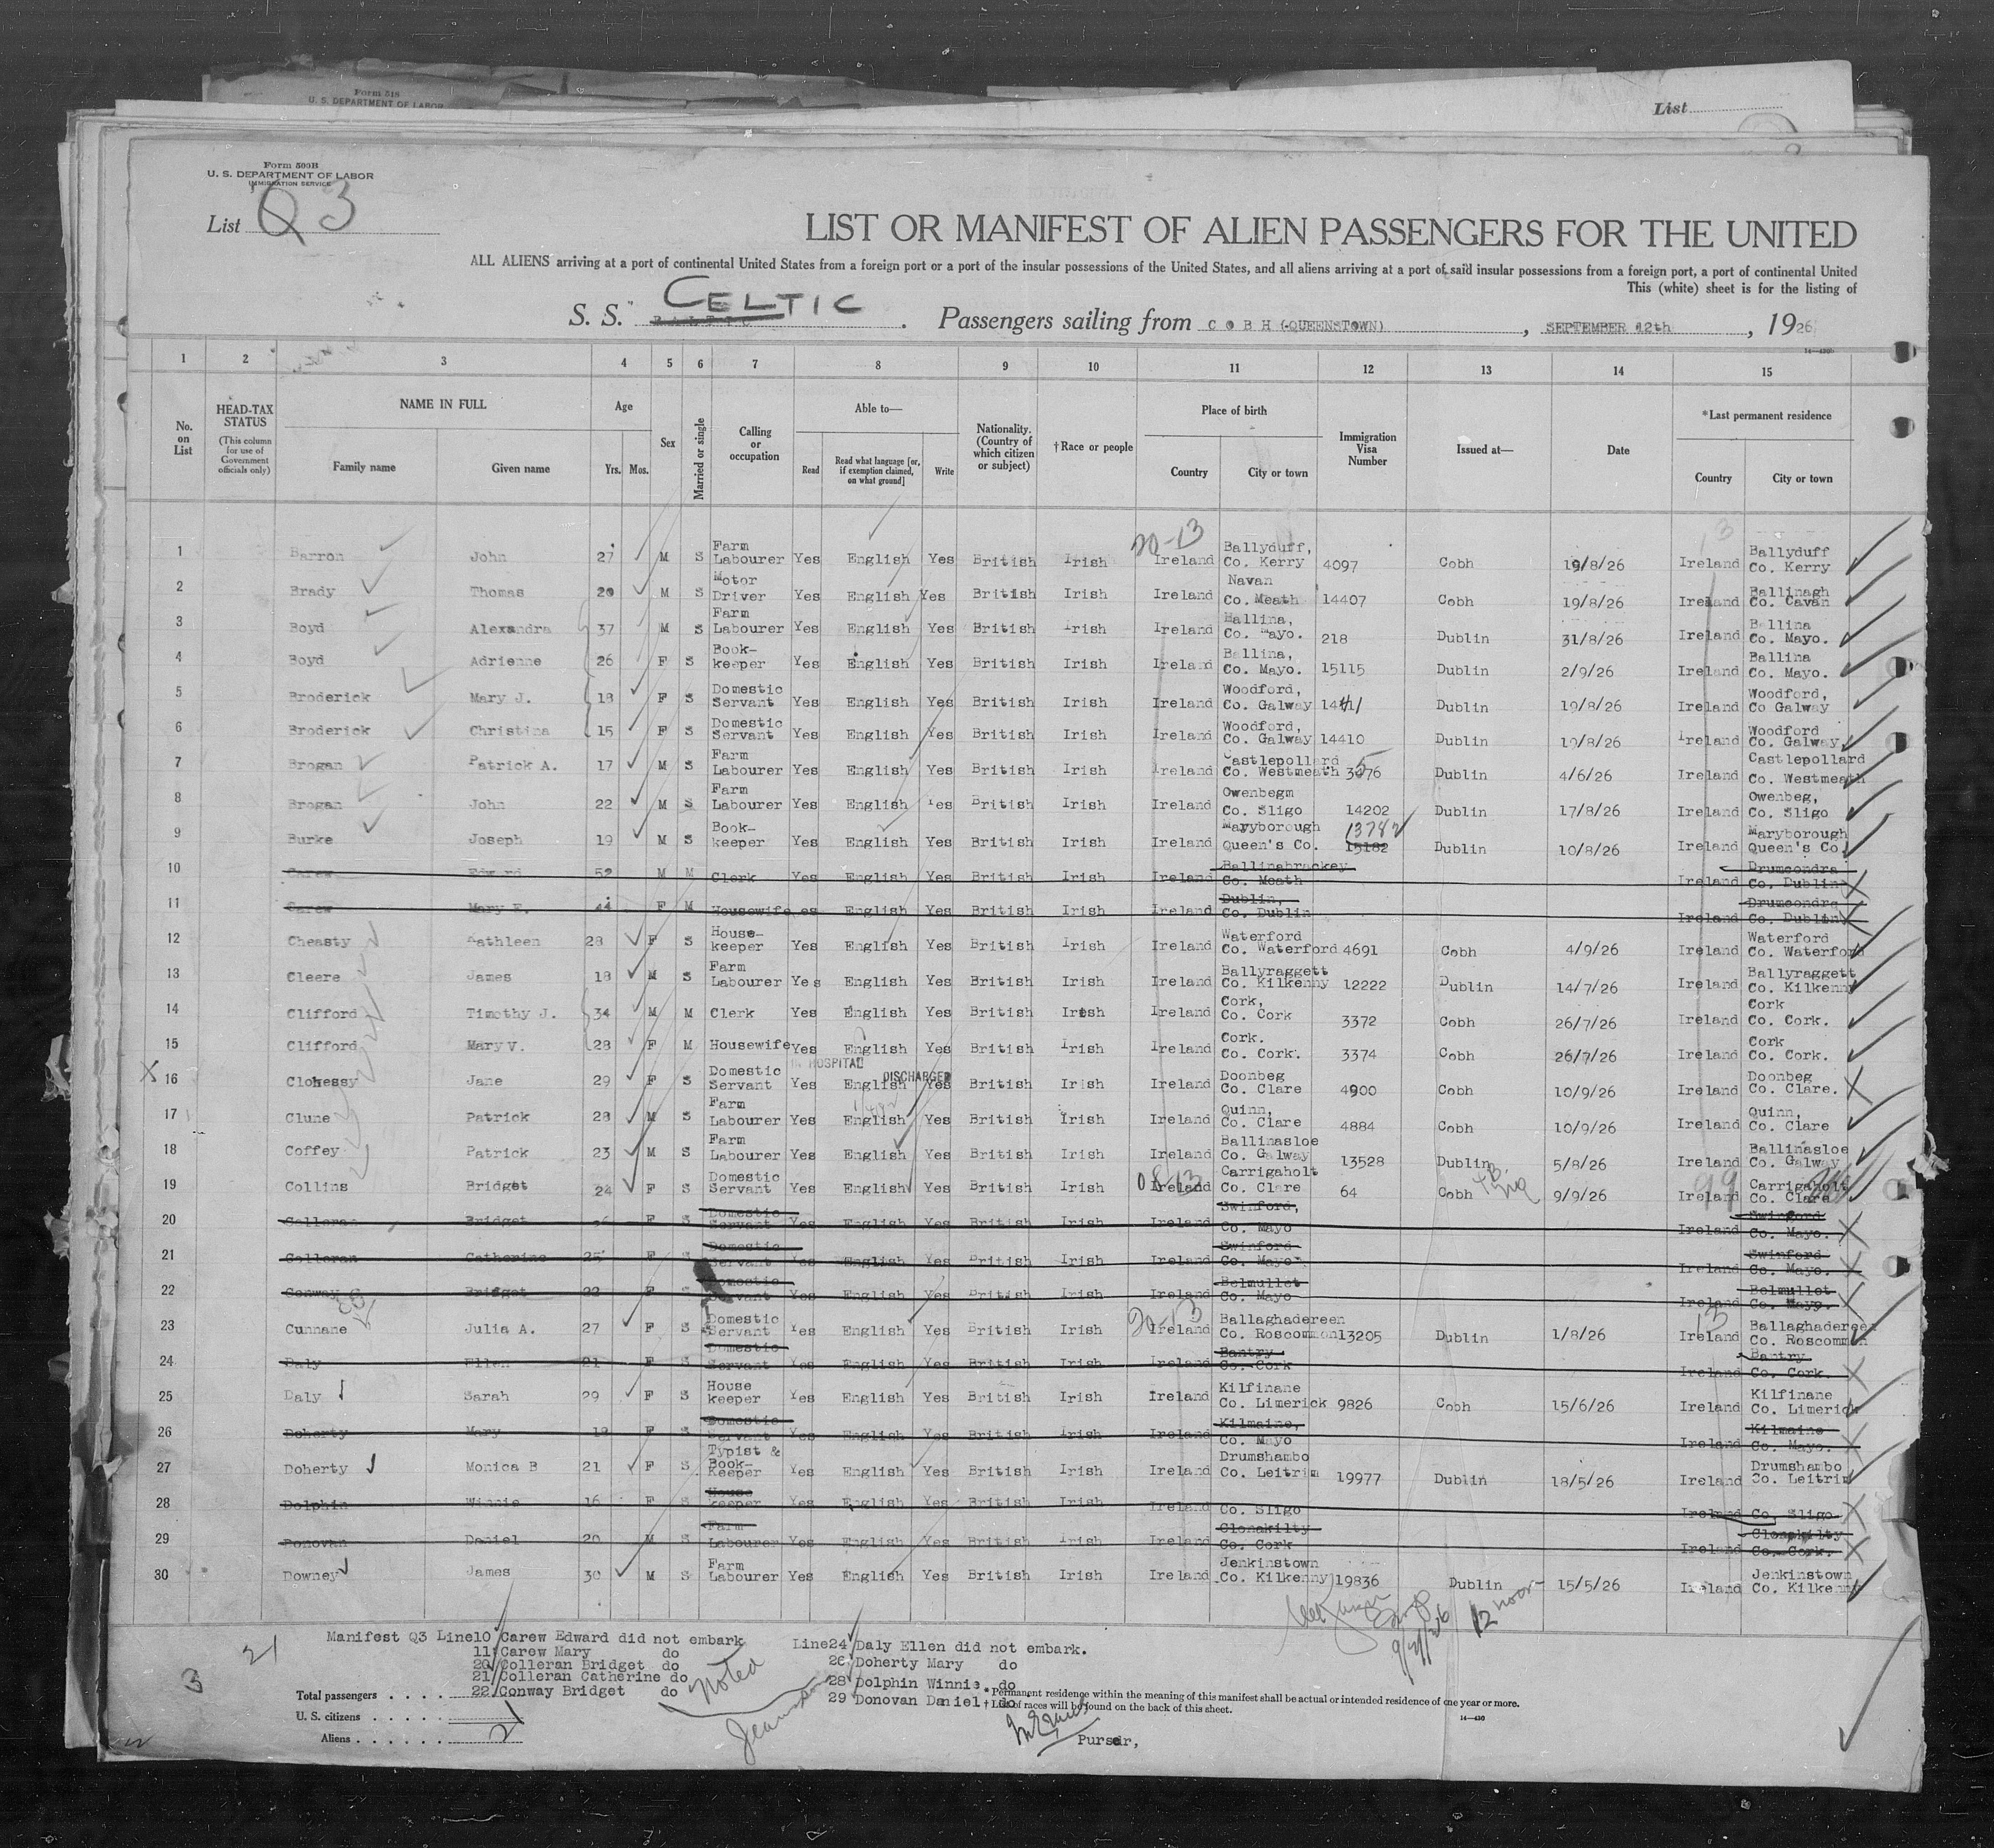 Form 518
U. S. DEPARTMENT OF LABOR
List
Form 500B
U. S. DEPARTMENT OF LABOR
IMMIGRATION SERVICE
List Q3
LIST OR MANIFEST OF ALIEN PASSENGERS FOR THE UNITED
ALL ALIENS arriving at a port of continental United States from a foreign port or a port of the insular possessions of the United States, and all aliens arriving at a port of said insular possessions from a foreign port, a port of continental United
This (white) sheet is for the listing of
S. S. CELTIC Passengers sailing from COBH (QUEENSTOWN), SEPTEMBER 12th, 1926
1 2 3 4 5 6 7 8 9 10 11 12 13 14 15
No. on List
HEAD-TAX STATUS (This column for use of Government officials only)
NAME IN FULL
Family name Given name
Age Yrs. Mos.
Sex
Married or single
Calling or occupation
Able to—
Read Read what language [or, if exemption claimed, on what ground] Write
Nationality. (Country of which citizen or subject)
†Race or people
Place of birth
Country City or town
Immigration Visa Number
Issued at—
Date
*Last permanent residence
Country City or town
20-13
1 Barron John 27 M S Farm Labourer Yes English Yes British Irish Ireland Ballyduff, Co. Kerry 4097 Cobh 19/8/26 Ireland Ballyduff Co. Kerry
2 Brady Thomas 20 M S Motor Driver Yes English Yes British Irish Ireland Navan Co. Meath 14407 Cobh 19/8/26 Ireland Ballinagh Co. Cavan
3 Boyd Alexandra 37 M S Farm Labourer Yes English Yes British Irish Ireland Ballina, Co. Mayo. 218 Dublin 31/8/26 Ireland Ballina Co. Mayo.
4 Boyd Adrienne 26 F S Book-keeper Yes English Yes British Irish Ireland Ballina, Co. Mayo. 15115 Dublin 2/9/26 Ireland Ballina Co. Mayo.
5 Broderick Mary J. 18 F S Domestic Servant Yes English Yes British Irish Ireland Woodford, Co. Galway 14411 Dublin 19/8/26 Ireland Woodford, Co Galway
6 Broderick Christina 15 F S Domestic Servant Yes English Yes British Irish Ireland Woodford, Co. Galway 14410 Dublin 19/8/26 Ireland Woodford Co. Galway
7 Brogan Patrick A. 17 M S Farm Labourer Yes English Yes British Irish Ireland Castlepollard Co. Westmeath Dublin 4/6/26 Ireland Castlepollard Co. Westmeath
8 Brogan John 22 M S Farm Labourer Yes English Yes British Irish Ireland Owenbegm Co. Sligo 14202 Dublin 17/8/26 Ireland Owenbeg, Co. Sligo
9 Burke Joseph 19 M S Book-keeper Yes English Yes British Irish Ireland Maryborough Queen's Co. 13782 15182 Dublin 10/8/26 Ireland Maryborough Queen's Co.
10 Carew Edward 52 M M Clerk Yes English Yes British Irish Ireland Ballinabrackey Co. Meath Ireland Drumcondra Co. Dublin
11 Carew Mary E. 44 F M Housewife Yes English Yes British Irish Ireland Dublin, Co. Dublin Ireland Drumcondra Co. Dublin
12 Cheasty Kathleen 28 F S House-keeper Yes English Yes British Irish Ireland Waterford Co. Waterford 4691 Cobh 4/9/26 Ireland Waterford Co. Waterford
13 Cleere James 18 M S Farm Labourer Yes English Yes British Irish Ireland Ballyraggett Co. Kilkenny 12222 Dublin 14/7/26 Ireland Ballyraggett Co. Kilkenny
14 Clifford Timothy J. 34 M M Clerk Yes English Yes British Irish Ireland Cork, Co. Cork 3372 Cobh 26/7/26 Ireland Cork Co. Cork.
15 Clifford Mary V. 28 F M Housewife Yes English Yes British Irish Ireland Cork. Co. Cork. 3374 Cobh 26/7/26 Ireland Cork Co. Cork.
IN HOSPITAL DISCHARGED
X 16 Clohessy Jane 29 F S Domestic Servant Yes English Yes British Irish Ireland Doonbeg Co. Clare 4900 Cobh 10/9/26 Ireland Doonbeg Co. Clare.
17 Clune Patrick 28 M S Farm Labourer Yes English Yes British Irish Ireland Quinn, Co. Clare 4884 Cobh 10/9/26 Ireland Quinn, Co. Clare
18 Coffey Patrick 23 M S Farm Labourer Yes English Yes British Irish Ireland Ballinasloe Co. Galway 13528 Dublin 5/8/26 Ireland Ballinasloe Co. Galway
19 Collins Bridget 24 F S Domestic Servant Yes English Yes British Irish Ireland Carrigaholt Co. Clare 64 Cobh 9/9/26 Ireland 99 Carrigaholt Co. Clare
20 Colleran Bridget 26 F S Domestic Servant Yes English Yes British Irish Ireland Swinford, Co. Mayo Ireland Swinford Co. Mayo.
21 Colleran Catherine 25 F S Domestic Servant Yes English Yes British Irish Ireland Swinford Co. Mayo Ireland Swinford Co. Mayo.
22 Conway Bridget 22 F S Domestic Servant Yes English Yes British Irish Ireland Belmullet Co. Mayo Ireland Belmullet Co. Mayo.
20-13 13
23 Cunnane Julia A. 27 F S Domestic Servant Yes English Yes British Irish Ireland Ballaghadereen Co. Roscommon 13205 Dublin 1/8/26 Ireland Ballaghadereen Co. Roscommon
24 Daly Ellen 21 F S Domestic Servant Yes English Yes British Irish Ireland Bantry Co. Cork Ireland Bantry Co. Cork.
25 Daly Sarah 29 F S House keeper Yes English Yes British Irish Ireland Kilfinane Co. Limerick 9826 Cobh 15/6/26 Ireland Kilfinane Co. Limerick
26 Doherty Mary 18 F S Domestic Servant Yes English Yes British Irish Ireland Kilmaine, Co. Mayo Ireland Kilmaine Co. Mayo.
27 Doherty Monica B 21 F S Typist & Book-Keeper Yes English Yes British Irish Ireland Drumshambo Co. Leitrim 19977 Dublin 18/5/26 Ireland Drumshambo Co. Leitrim
28 Dolphin Winnie 16 F S House keeper Yes English Yes British Irish Ireland Co. Sligo Ireland Co. Sligo
29 Donovan Daniel 20 M S Farm Labourer Yes English Yes British Irish Ireland Clonakilty Co. Cork Ireland Clonakilty Co. Cork.
30 Downey James 30 M S Farm Labourer Yes English Yes British Irish Ireland Jenkinstown Co. Kilkenny 19836 Dublin 15/5/26 Ireland Jenkinstown Co. Kilkenny
9/21/26 12 noon
21 Manifest Q3 Line10 Carew Edward did not embark Line24 Daly Ellen did not embark.
11 Carew Mary do 26 Doherty Mary do
3 20 Colleran Bridget do 28 Dolphin Winnie. do
21 Colleran Catherine do 29 Donovan Daniel. do
22 Conway Bridget do
Noted
Total passengers
U. S. citizens
Aliens 21
*Permanent residence within the meaning of this manifest shall be actual or intended residence of one year or more.
†List of races will be found on the back of this sheet.
14—430
Purser,